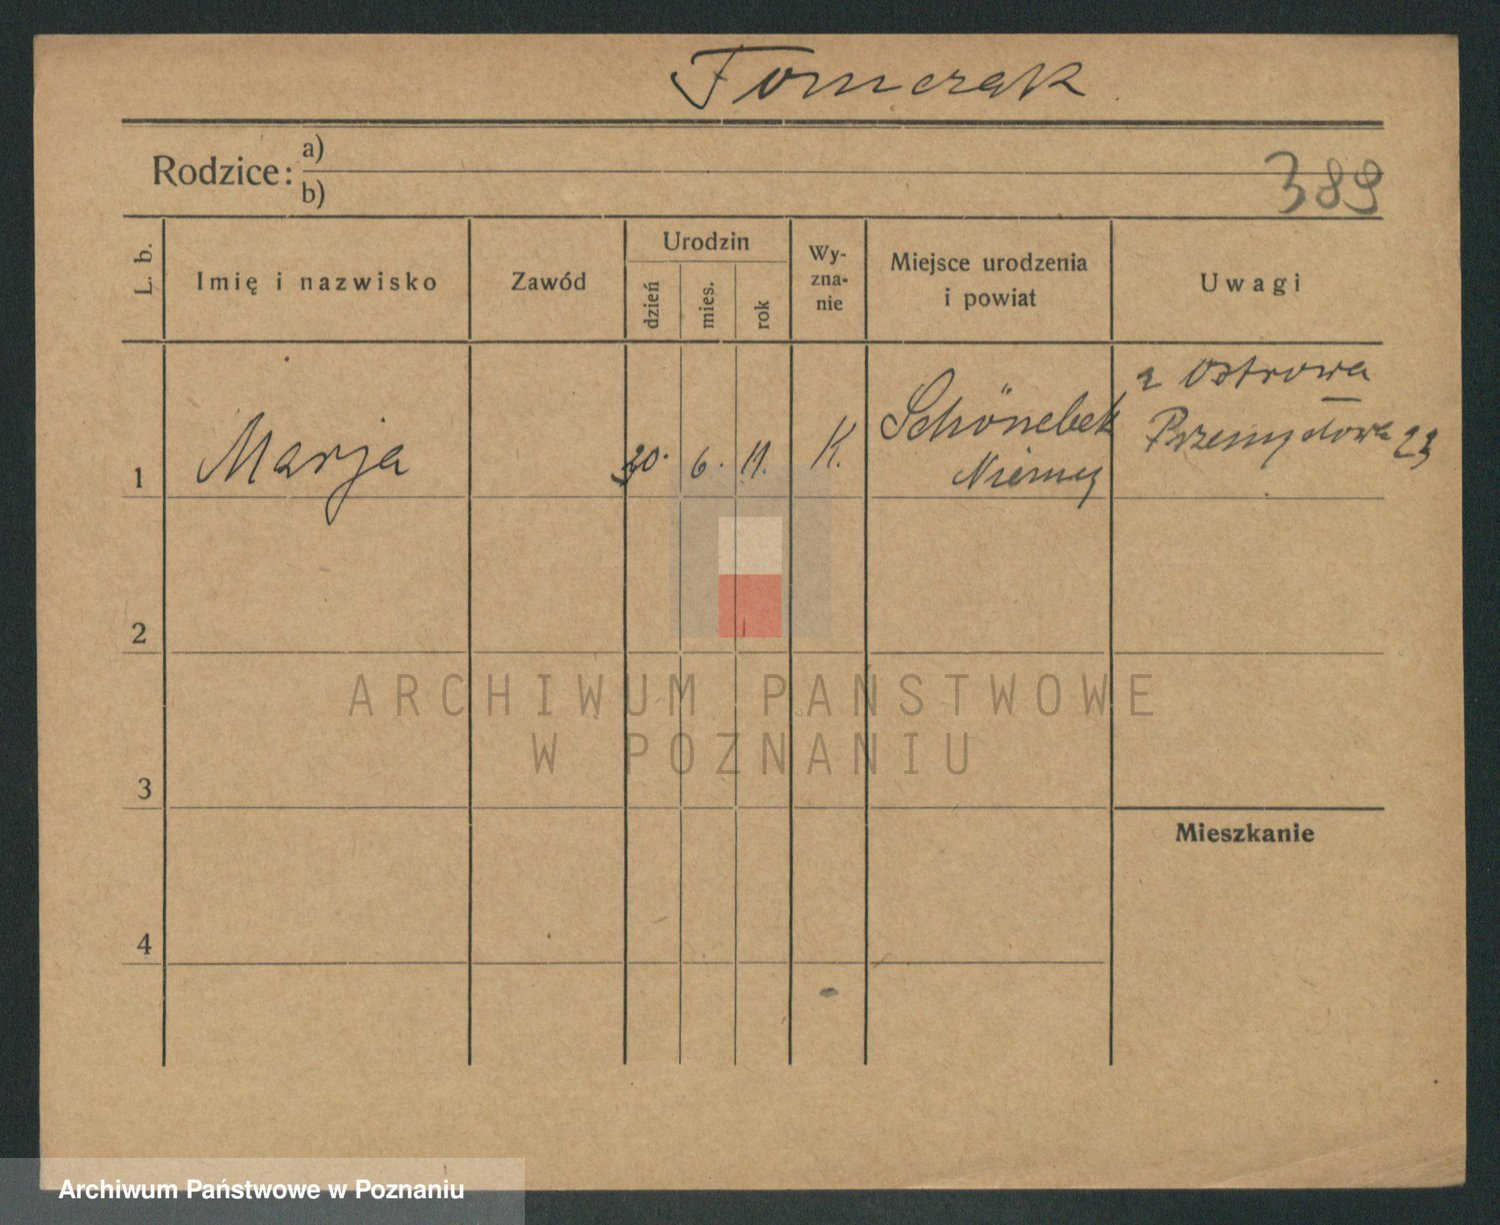 Tomczak
Rodzice: a)
b)
389
L. b.
Imię i nazwisko
Zawód
Urodzin
dzień
mies.
rok
Wy-
zna-
nie
Miejsce urodzenia
i powiat
Uwagi
1
Marja
30. 6. 11.
K.
Schönebek
Niemcy
z Ostrowa
Przemysłowa 23
2
3
4
Mieszkanie
ARCHIWUM PAŃSTWOWE
W POZNANIU
Archiwum Państwowe w Poznaniu